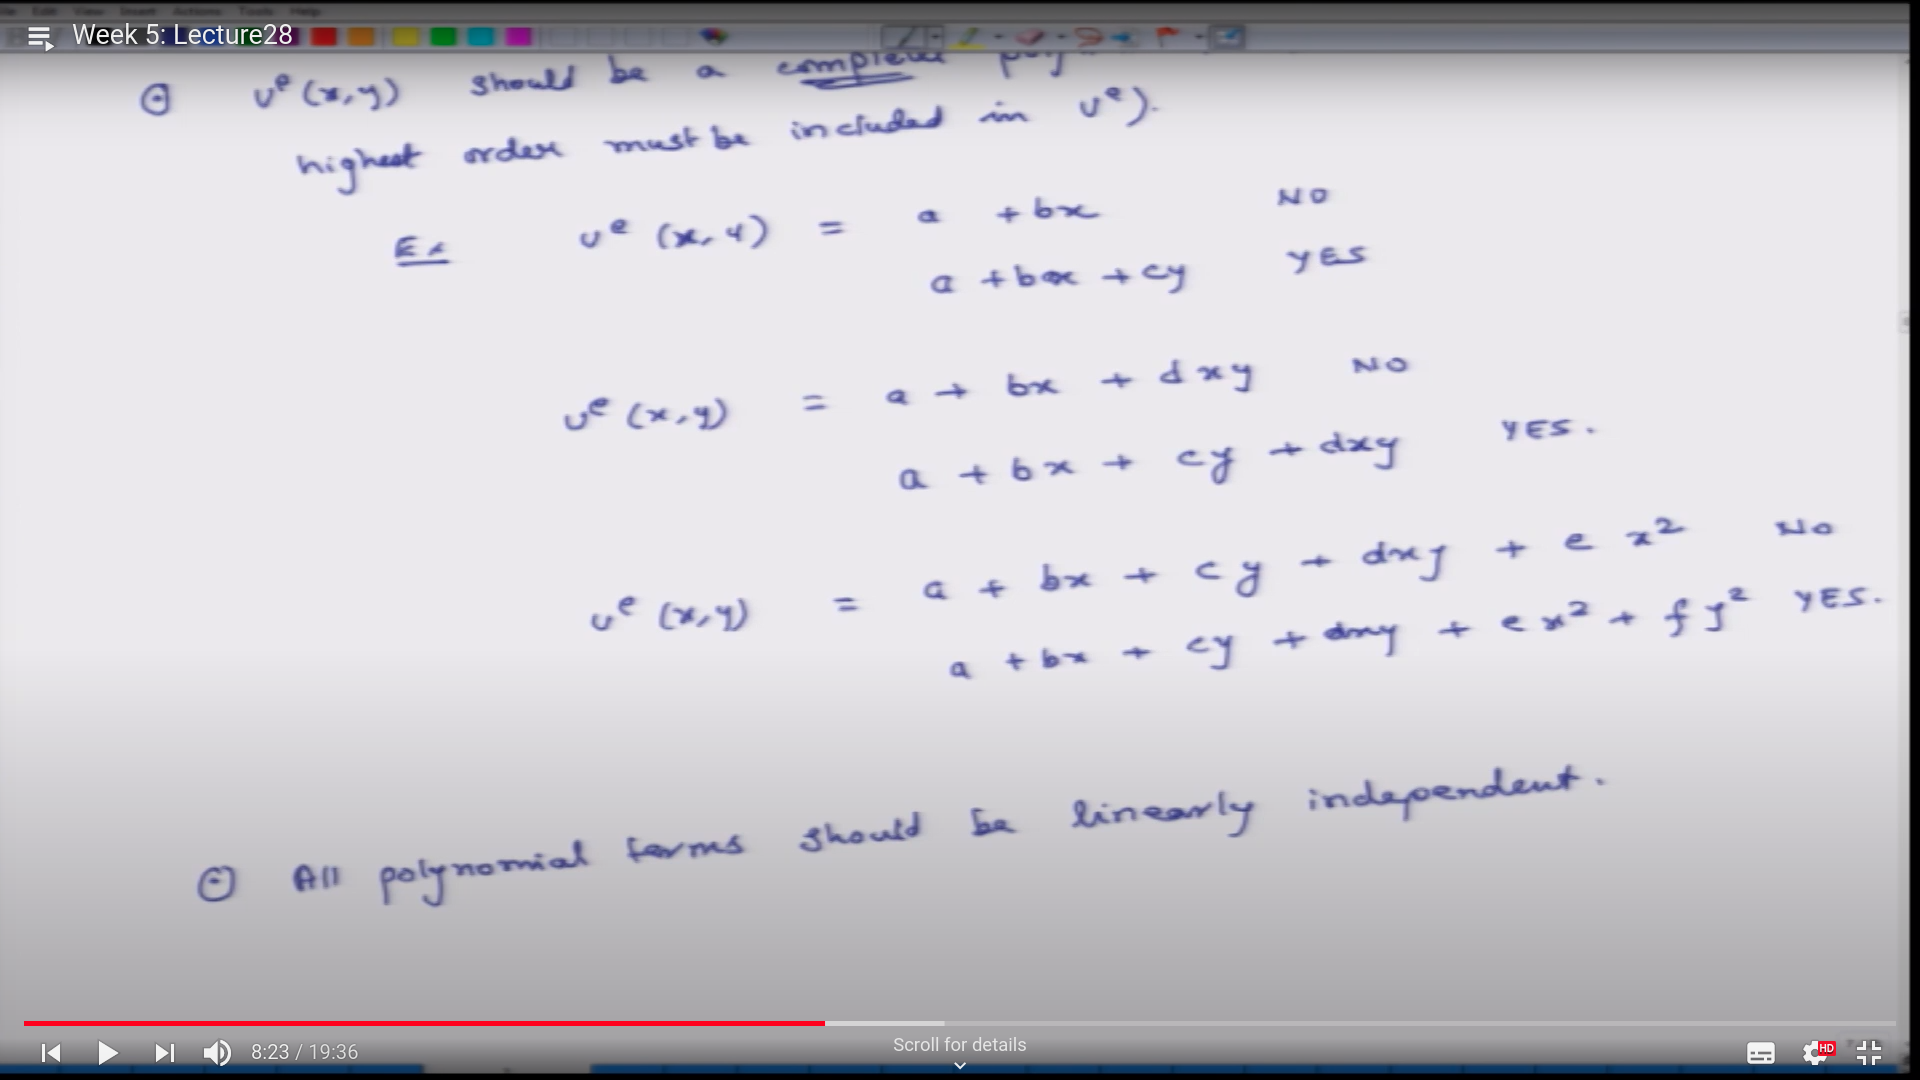 File Edit View Insert Actions Tools Help
Week 5: Lecture28
⊙ uᵉ(x,y) should be a complete
highest order must be included in uᵉ).
Ex uᵉ (x,y) = a + bx NO
a + bx + cy YES
uᵉ (x,y) = a + bx + dxy NO
a + bx + cy + dxy YES.
uᵉ (x,y) = a + bx + cy + dxy + e x² NO
a + bx + cy + dxy + e x² + f y² YES.
⊙ All polynomial terms should be linearly independent.
8:23 / 19:36
Scroll for details
HD